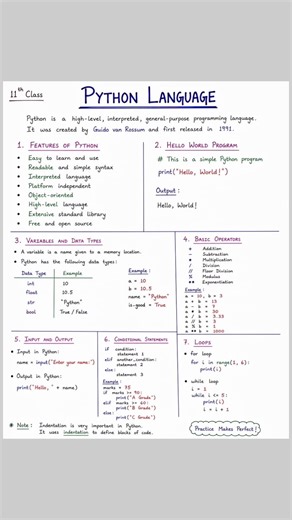 11th Class
PYTHON LANGUAGE
Python is a high-level, interpreted, general-purpose programming language.
It was created by Guido van Rossum and first released in 1991.
1. FEATURES OF PYTHON
• Easy to learn and use
• Readable and simple syntax
• Interpreted language
• Platform independent
• Object-oriented
• High-level language
• Extensive standard library
• Free and open source
2. HELLO WORLD PROGRAM
# This is a simple Python program
print("Hello, World!")
Output:
Hello, World!
3. VARIABLES AND DATA TYPES
• A variable is a name given to a memory location.
• Python has the following data types:
Data Type Example
int 10
float 10.5
str "Python"
bool True / False
Example:
a = 10
b = 10.5
name = "Python"
is-good = True
4. BASIC OPERATORS
+ Addition
- Subtraction
* Multiplication
/ Division
// Floor Division
% Modulus
** Exponentiation
Example:
a = 10, b = 3
a + b = 13
a - b = 7
a * b = 30
a / b = 3.33
a // b = 3
a % b = 1
a ** b = 1000
5. INPUT AND OUTPUT
• Input in Python:
name = input("Enter your name:")
• Output in Python:
print("Hello, " + name)
6. CONDITIONAL STATEMENTS
if condition:
statement 1
elif another_condition:
statement 2
else:
statement 3
Example:
marks = 75
if marks >= 90:
print("A Grade")
elif marks >= 60:
print("B Grade")
else:
print("C Grade")
7. LOOPS
• for loop
for i in range(1, 6):
print(i)
• while loop
i = 1
while i <= 5:
print(i)
i = i + 1
* Note: Indentation is very important in Python.
It uses indentation to define blocks of code.
Practice Makes Perfect!